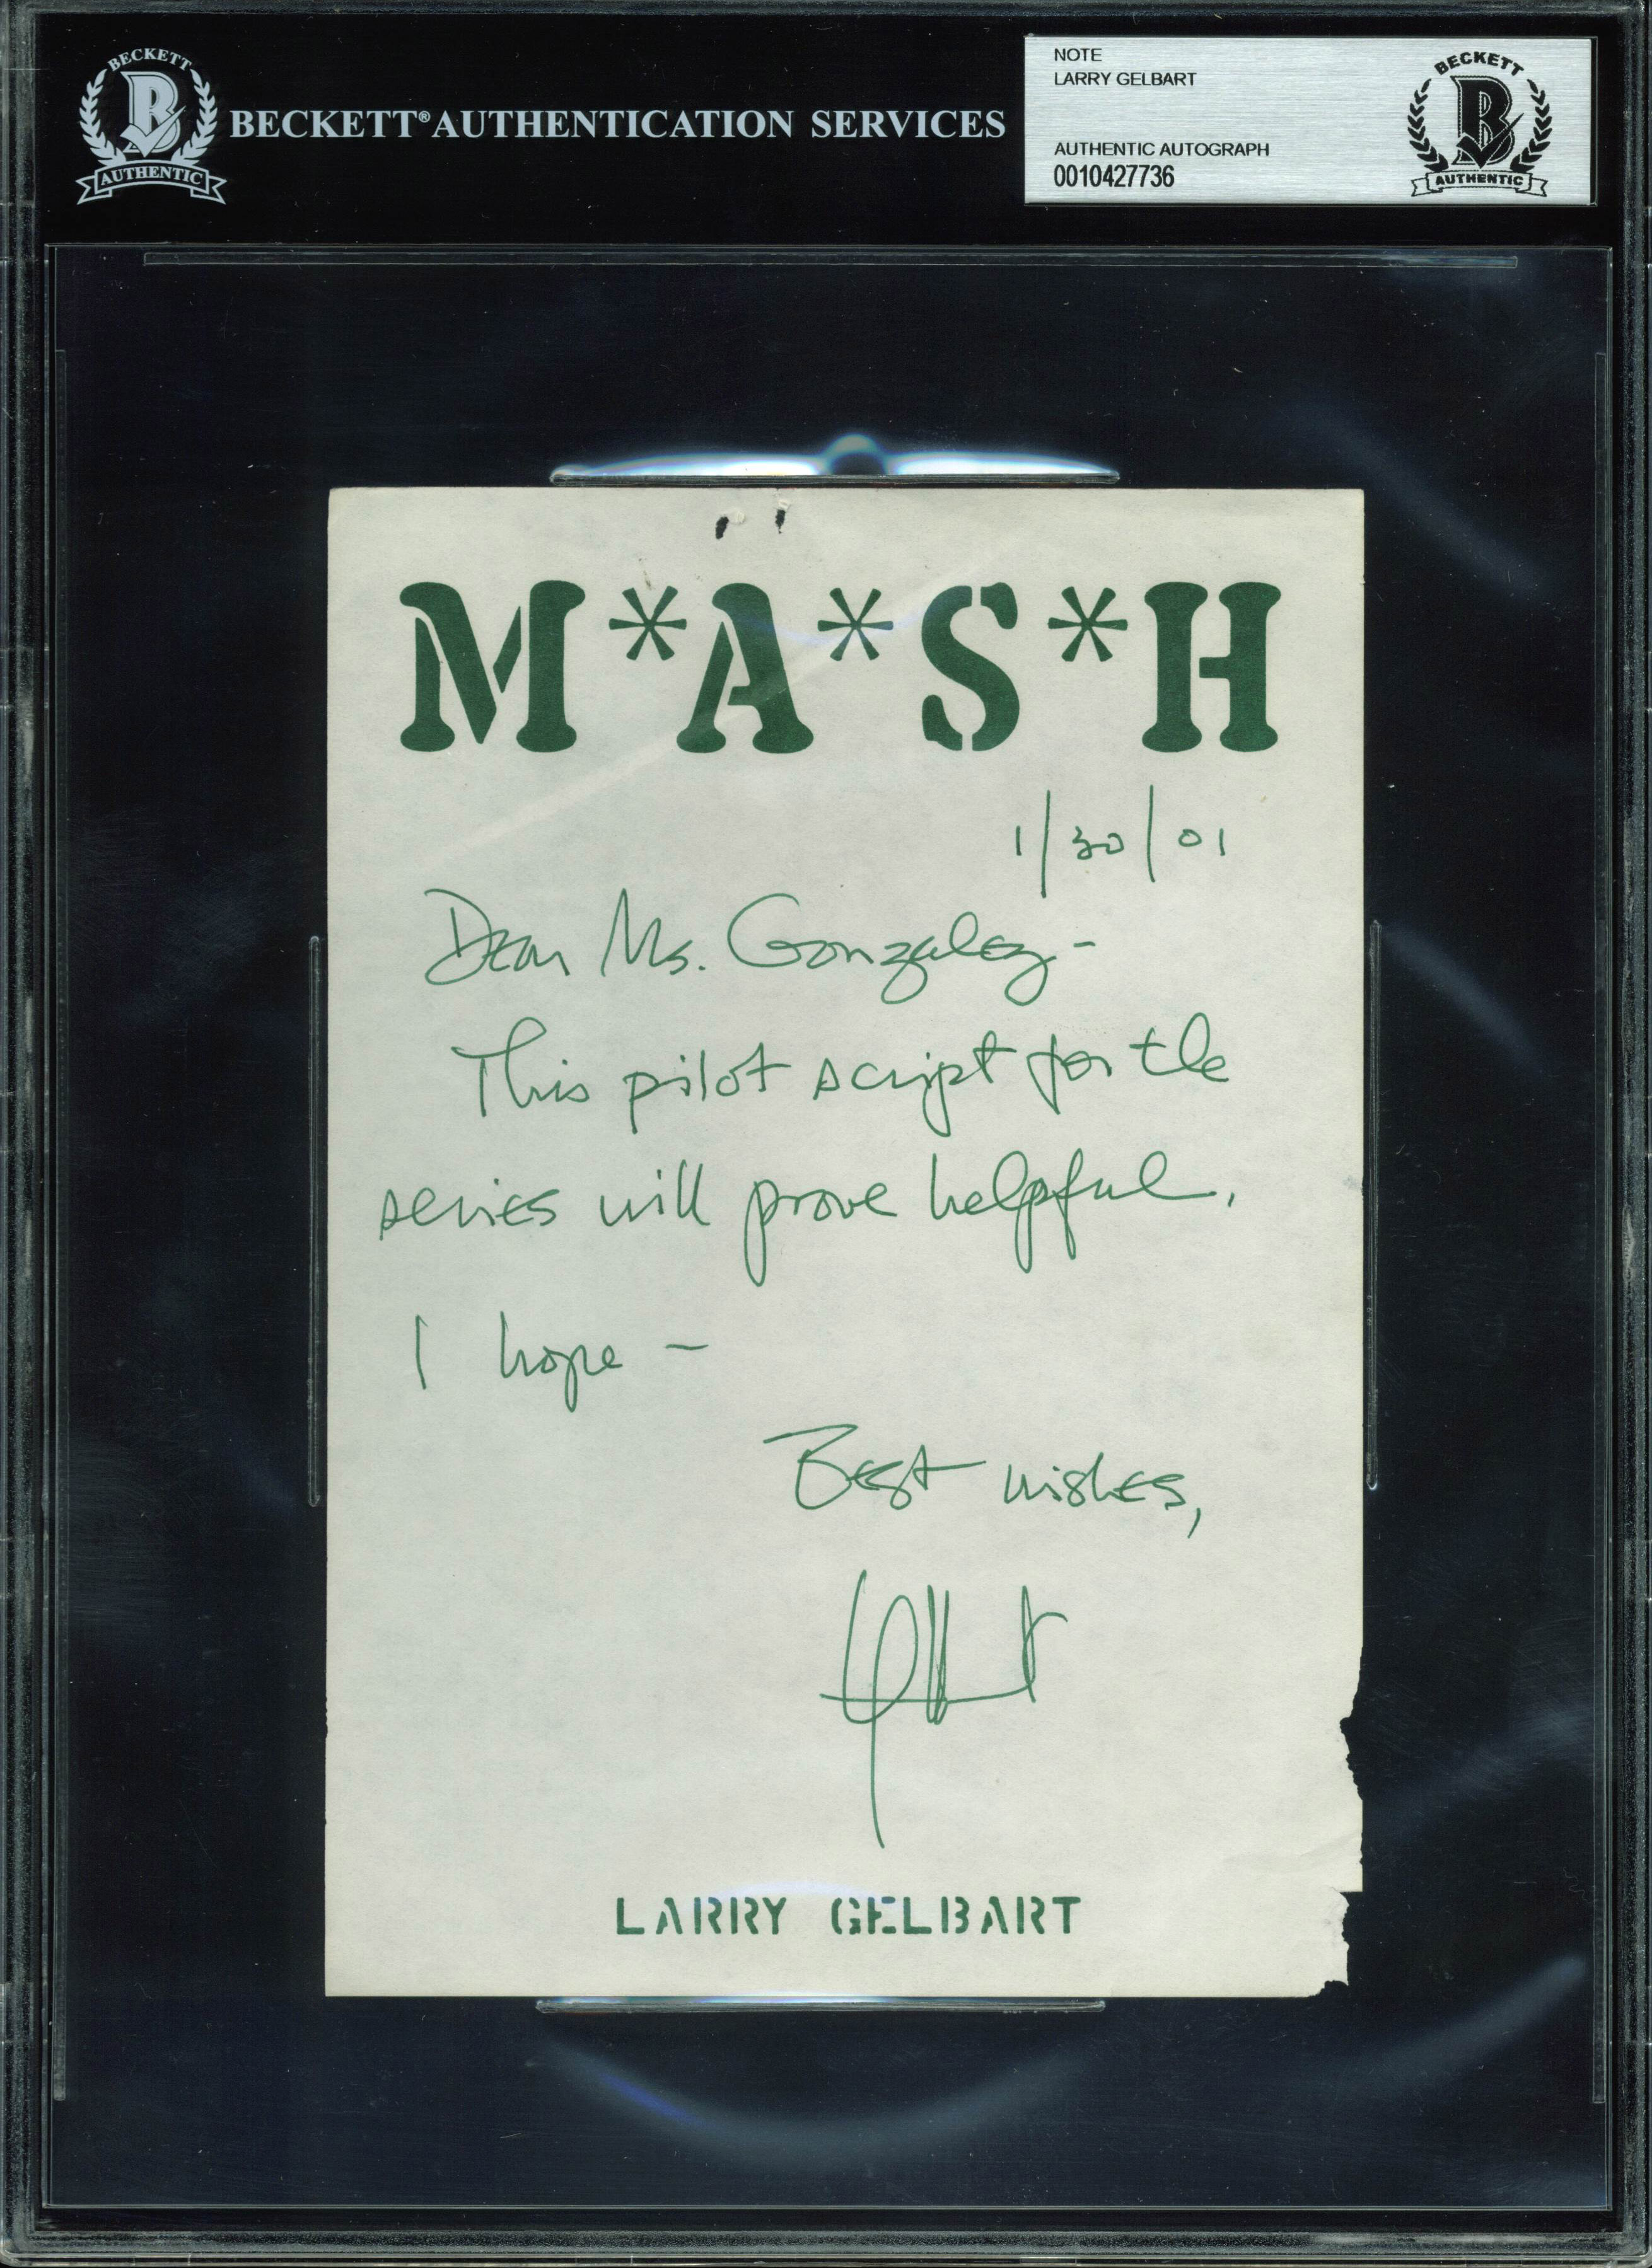 BECKETT
B
AUTHENTIC
BECKETT® AUTHENTICATION SERVICES
NOTE
LARRY GELBART
AUTHENTIC AUTOGRAPH
0010427736
BECKETT
B
AUTHENTIC
M*A*S*H
1/30/01
Dear Ms. Gonzalez -
This pilot script for the
series will prove helpful,
I hope -
Best wishes,
LARRY GELBART